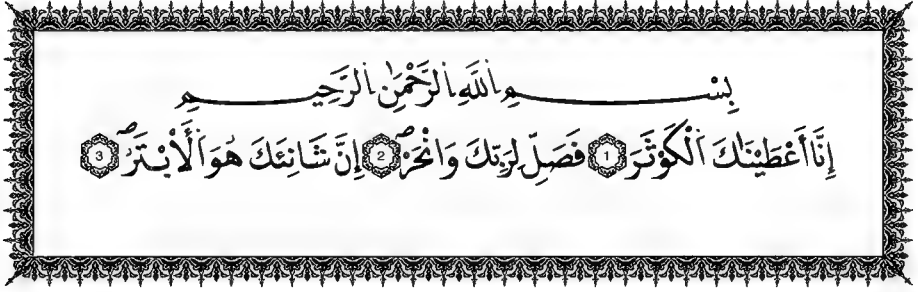 بِسْمِ اللَّهِ الرَّحْمَٰنِ الرَّحِيمِ
إِنَّا أَعْطَيْنَاكَ الْكَوْثَرَ 1 فَصَلِّ لِرَبِّكَ وَانْحَرْ 2 إِنَّ شَانِئَكَ هُوَ الْأَبْتَرُ 3